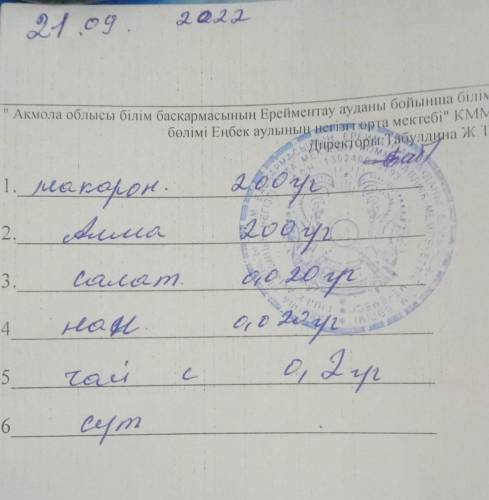 21.09. 2022
" Ақмола облысы білім басқармасының Ерейментау ауданы бойынша білім
бөлімі Еңбек аулының негізгі орта мектебі" КММ
Директоры: Габулдина Ж.Т
1. макарон. 200гр
2. Алма 200гр
3. салат. 0,020гр
4 нан. 0,022гр
5 чай с 0,2гр
6 сүт